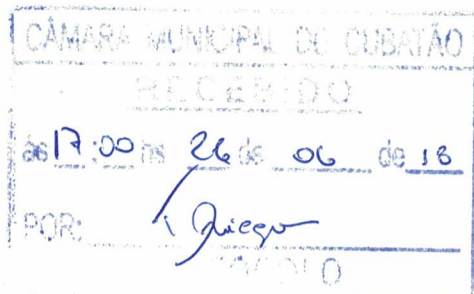 CÂMARA MUNICIPAL DE CUBATÃO
RECEBIDO
às 17:00 hs 26 de 06 de 18
POR: Diego